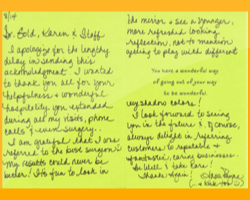 8/14
Dr. Gold, Karen & Staff
I apologize for the lengthy
delay in sending this
acknowledgment. I wanted
to thank you all for your
helpfulness & wonderful
hospitality, you extended
during all my visits, phone
calls & surgery...
I am grateful that I was
referred to the best surgeon.
My results could never be
better! It's fun to look in
the mirror & see a younger,
more refreshed looking
reflection, not to mention
getting to play with different
You have a wonderful way
of going out of your way
to be wonderful!
eyeshadow colors!
I look forward to seeing
you in the future & of course,
always delight in referring
customers to reputable &
fantastic, caring businesses.
Be Well & take Care!
Thanks Again!